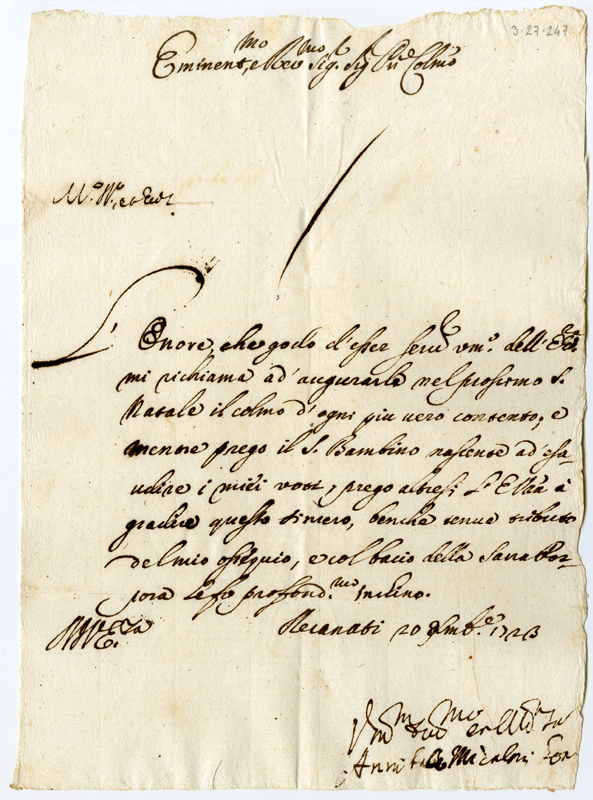 3-27-247
Eminent.mo e Rev.mo Sig.r Sig.r P.ne Colmo
L'Onore, che godo d'esser serv.e vm.o dell'E.V.
mi richiama ad' augurarle nel prossimo S.
Natale il colmo d'ogni piu vero contento; e
mentre prego il S. Bambino nascente ad' esa-
udire i miei voti, prego altresi l'E.V.ra à
gradire questo sincero, benche tenue tributo
del mio ossequio, e col bacio della Sacra Por-
pora le fo profond.mo inchino.
Recanati 20 Xmb.e 1723